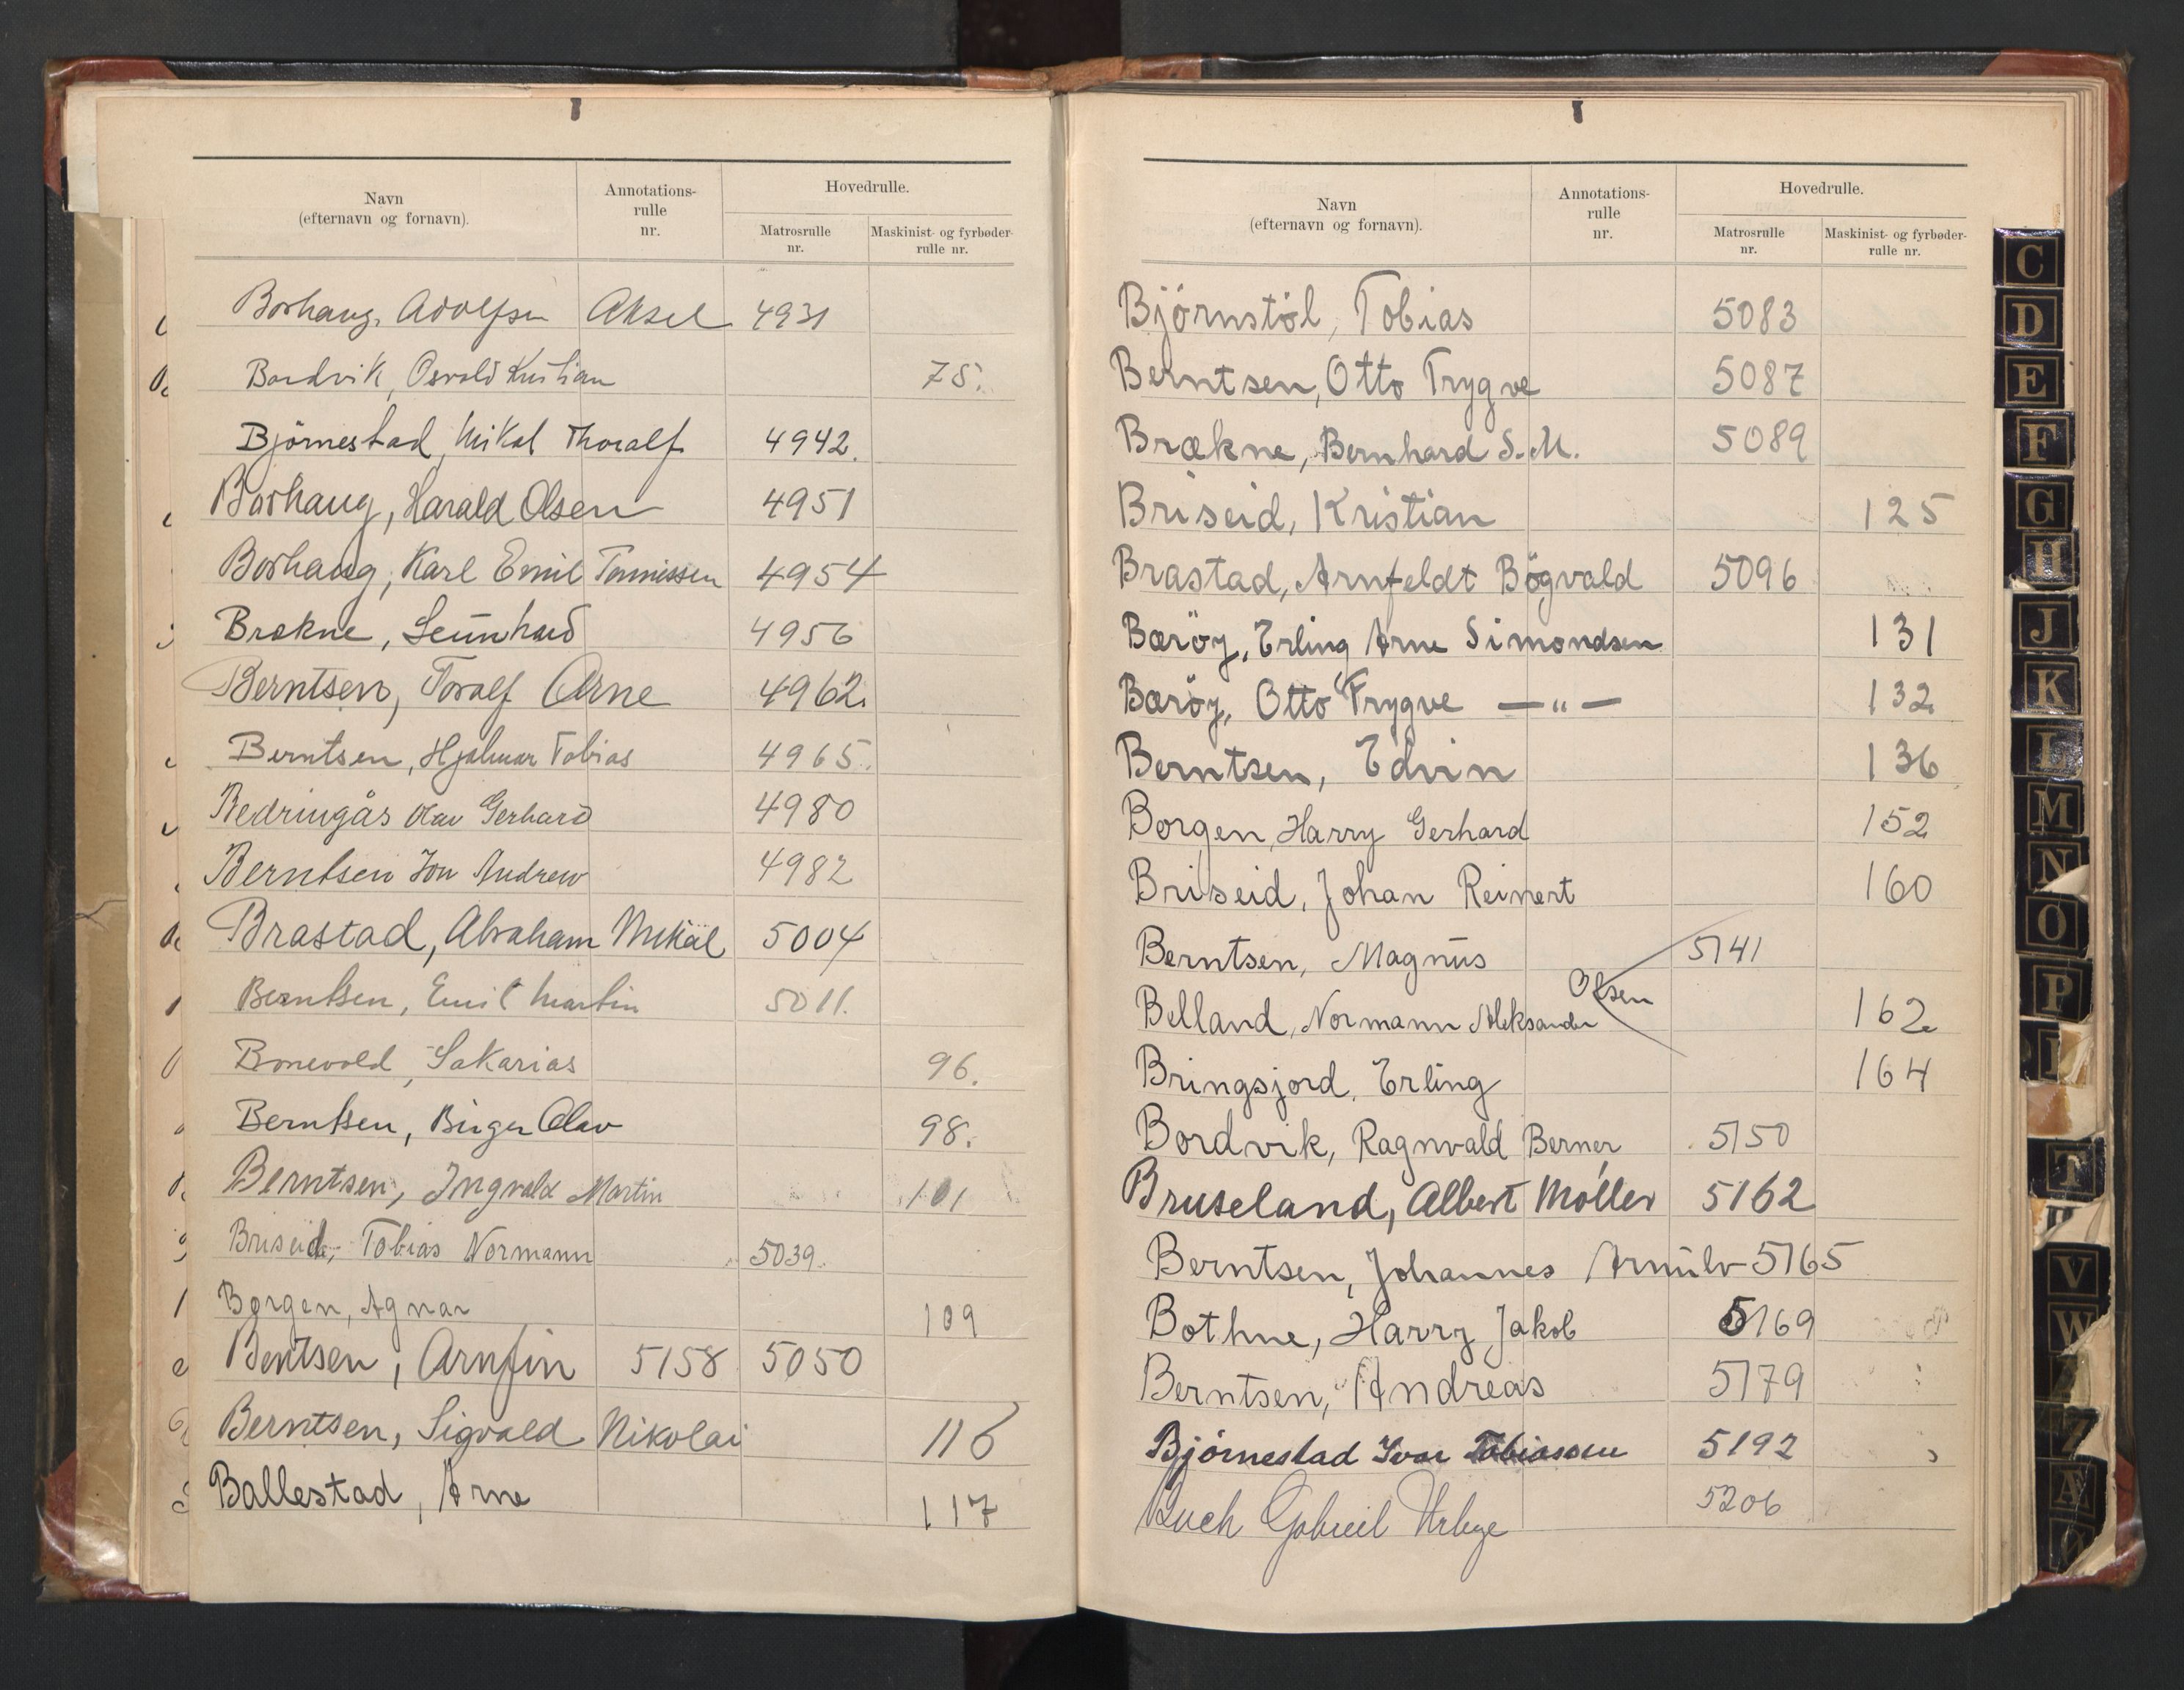 Navn
(efternavn og fornavn).
Annotations-
rulle
nr.
Hovedrulle.
Matrosrulle
nr.
Maskinist- og fyrbøder-
rulle nr.
Borhaug, Adolfsen Aksel 4931
Bordvik, Osvald Kristian 78.
Björnestad, Mikal Thoralf 4942.
Borhaug, Harald Olsen 4951
Borhaug, Karl Emil Tønnissen 4954
Brøkne, Leonhard 4956
Berntsen, Toralf Arne 4962.
Berntsen, Hjalmar Tobias 4965.
Bedringås Olav Gerhard 4980
Berntsen Jon Andrew 4982
Brastad, Abraham Mikal 5004
Berntsen, Emil Martin 5011.
Bonevold, Sakarias 96.
Berntsen, Birger Olav 98.
Berntsen, Ingvald Martin 101
Briseid, Tobias Normann 5039.
Borgen, Agnar 109
Bentsen, Arnfin 5158 5050
Berntsen, Sigvald Nikolai 116
Ballestad, Arne 117
Navn
(efternavn og fornavn).
Annotations-
rulle
nr.
Hovedrulle.
Matrosrulle
nr.
Maskinist- og fyrbøder-
rulle nr.
Björnstöl, Tobias 5083
Berntsen, Otto Trygve 5087
Brækne, Bernhard S. M. 5089
Briseid, Kristian 125
Brastad, Arnfeldt Bögvald 5096
Bæröy, Erling Arne Simondsen 131
Bæröy, Otto Trygve —"— 132
Berntsen, Edvin 136
Borgen, Harry Gerhard 152
Briseid, Johan Reinert 160
Berntsen, Magnus 5141
Olsen
Belland, Normann Aleksander 162
Bringsjord, Erling 164
Bordvik, Ragnvald Berner 5150
Bruseland, Albert Möller 5162
Berntsen, Johannes Arnulv 5165
Bothne, Harry Jakob 5169
Berntsen, Andreas 5179
Björnestad Ivar Tobiassen 5192
Buch Gabriel 5206
C
D
E
F
G
H
J
K
L
M
N
O
P
T
V
W
Z
Æ